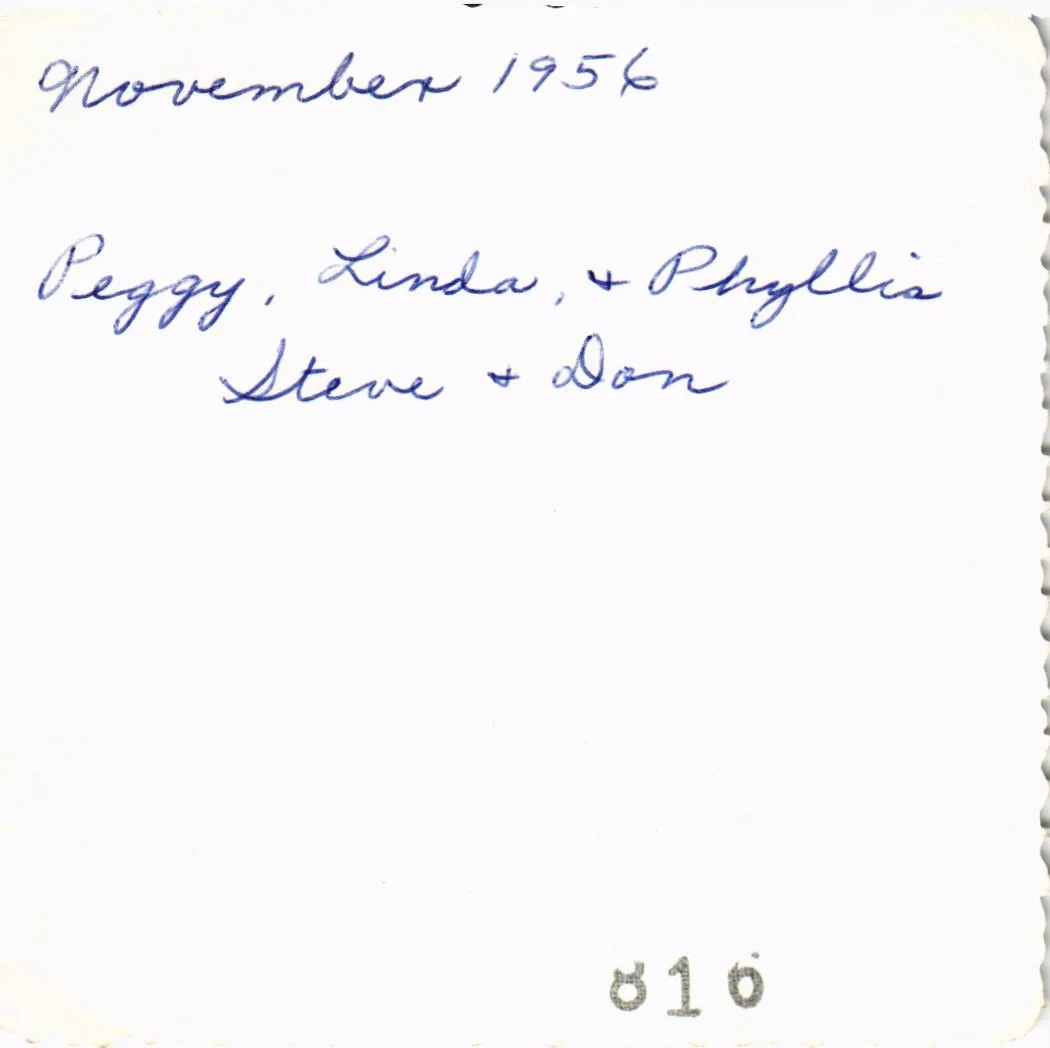 November 1956
Peggy, Linda, + Phyllis
Steve + Don
810